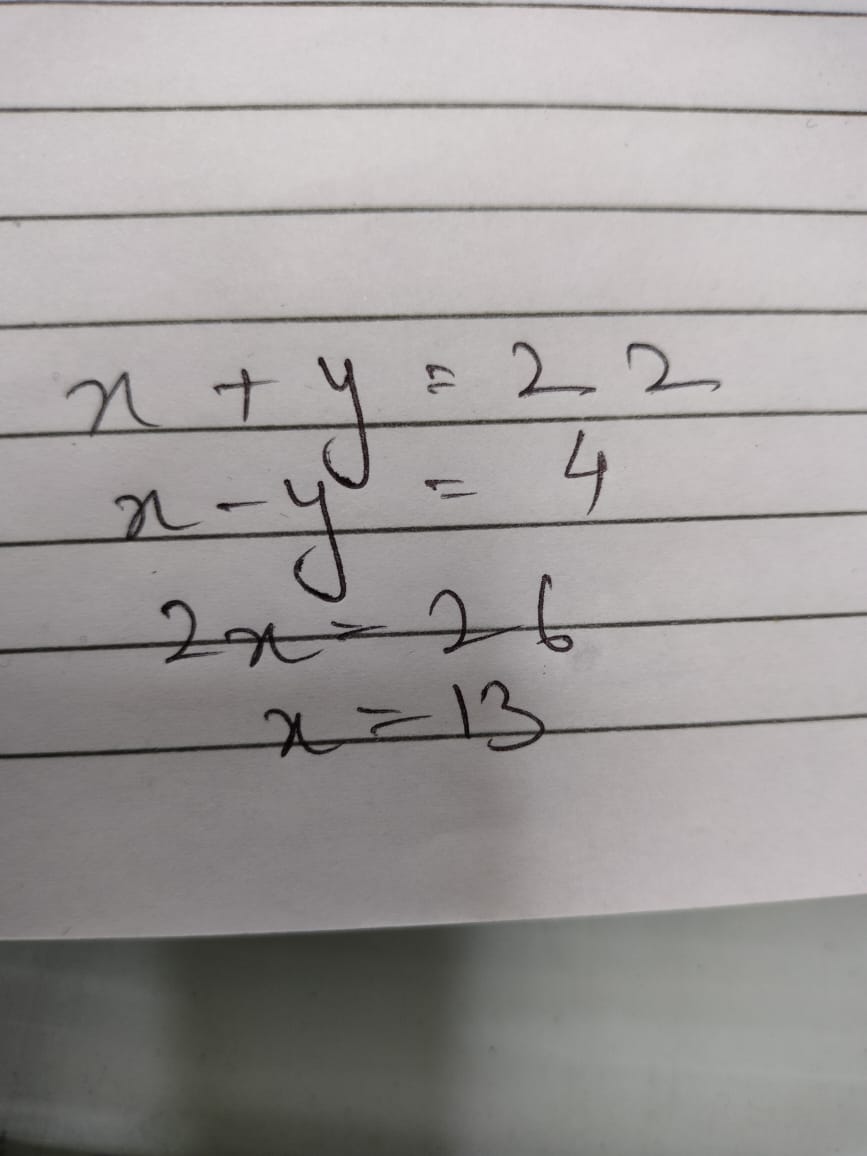 x + y = 22
x - y = 4
2x = 26
x = 13